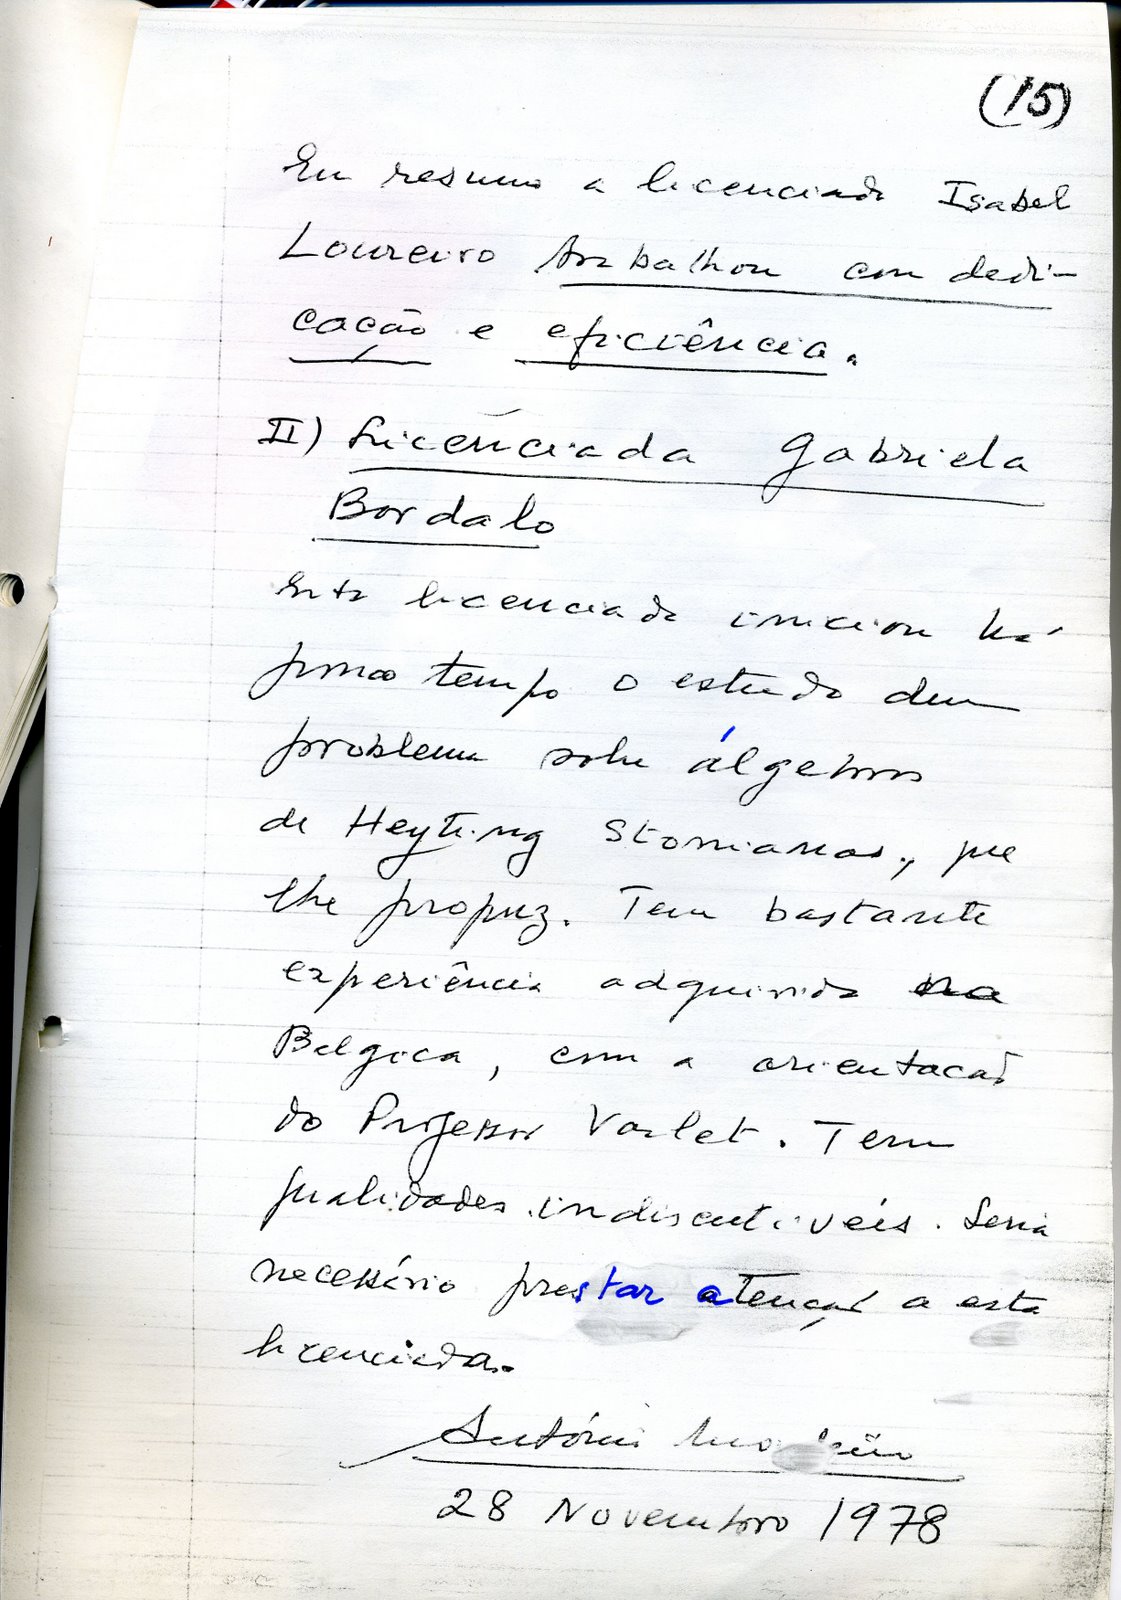 (15)
Em resumo a licenciada Isabel
Loureiro trabalhou com dedi-
cação e eficiência.
II) Licenciada Gabriela
Bordalo
Esta licenciada iniciou há
pouco tempo o estudo dum
problema sobre álgebras
de Heyting Stonianas, que
lhe propuz. Tem bastante
experiência adquirida na
Belgica, com a orientacão
do Professor Varlet. Tem
qualidades indiscutivéis. Seria
necessário prestar atenção a esta
licenciada.
António
28 Novembro 1978